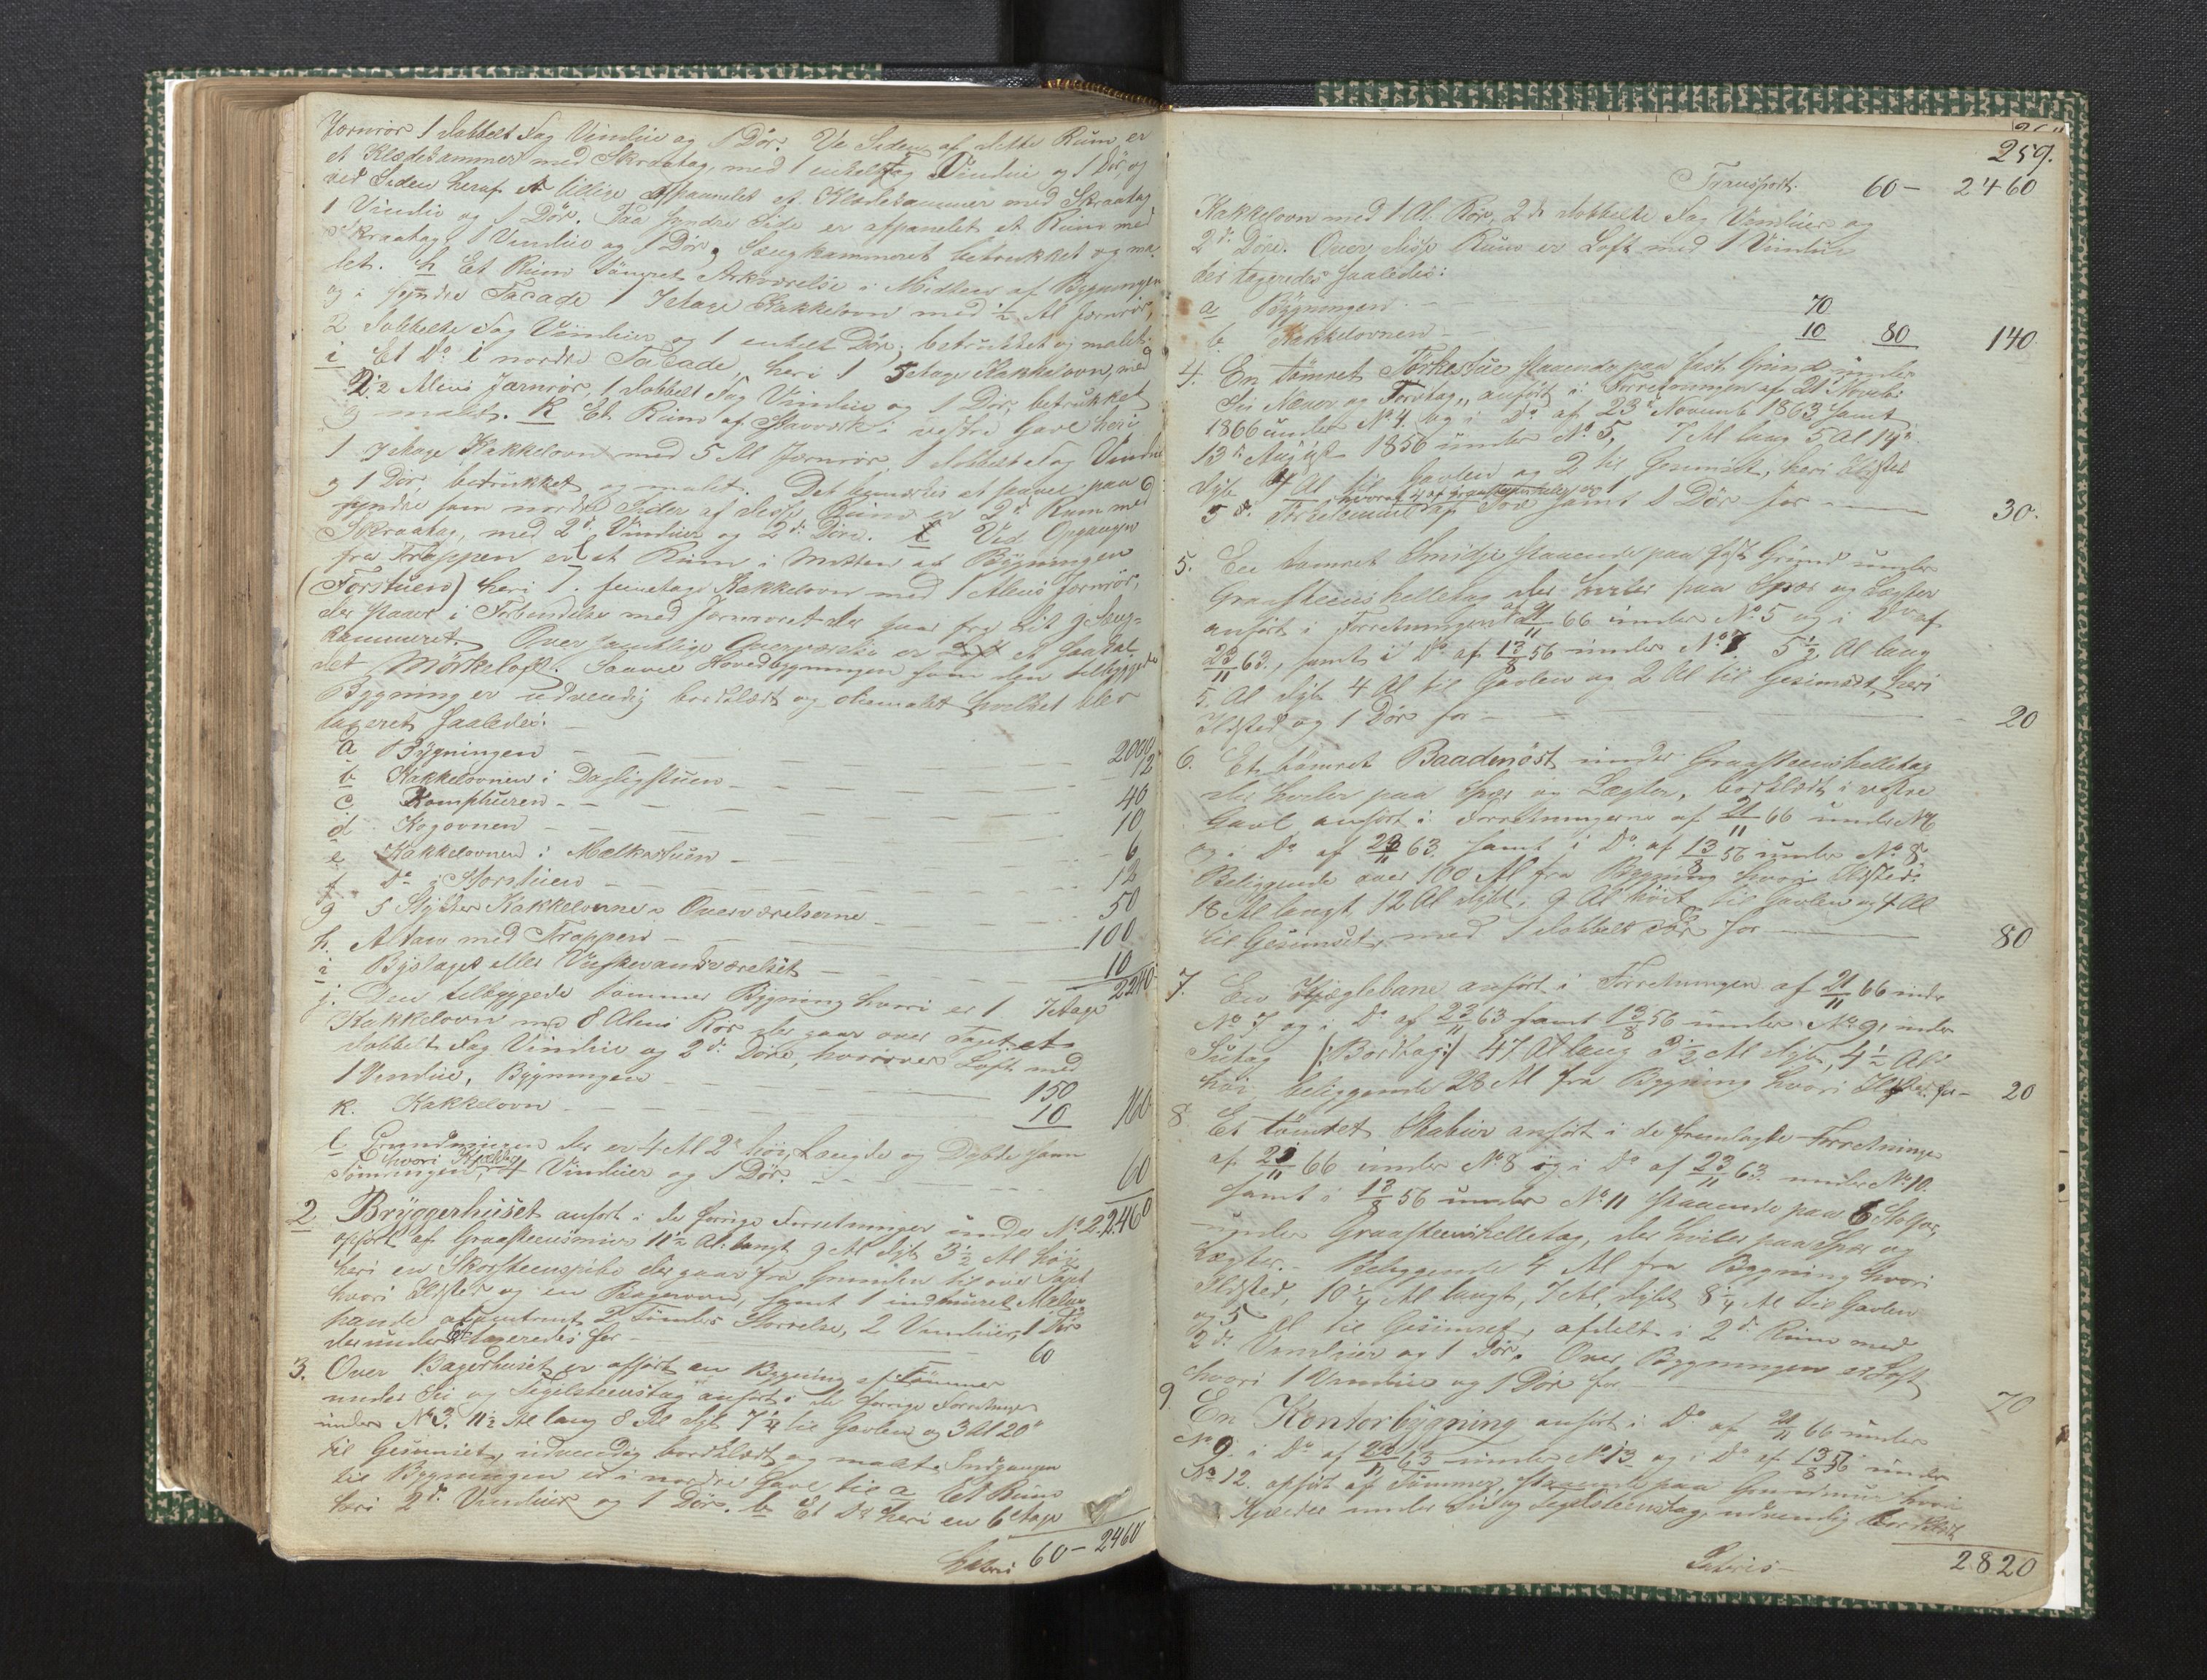 Jernrör 1 dobbelt Fag Vindue og 1 Dör. Ve Siden af dette Rum er
et Klædekammer med Skraatag, med 1 enkelt Fag Vindue og 1 Dör og
ved Siden heraf et lidere afpanelet et Klædekammer med Skraatag
1 Vindue og 1 Dör. Paa syndre Side er afpanelet et Rum med
Skraatag 1 Vindue og 1 Dör, Sengkammeret betrukket og ma-
let. h Et Rum Arkværelse i Midten af Bygningen
og i syndre Facade 1 7etage Kakkelovn med ½ Al Jernrör,
2 dobbelte Fag Vinduer og 1 enkelt Dör; betrukket og malet.
i Et Do i nordre Facade, heri 1 5etage Kakkelovn, med
2 Alens Jærnrör, 1 dobbelt Fag Vindue og 1 Dör, betrukket
og malet. k Et Rum af Stavverk i vestre Gavl heri
1 7etage Kakkelovn med 5 Al Jernrör, 1 dobbelt Fag Vindue
og 1 Dör, betrukket og malet. Det bemærkes at saavel paa
syndre som nordre Sider af disse Rum er 2de Rum med
Skraatag, med 2de Vinduer og 2de Döre. l Ved Opgangen
fra Trappen er et Rum i Midten af Bygningen
(Forstuen) heri 1. femetage Kakkelovn med 1 Alens Jernrör,
der staaer i Forbindelse med Jernröret der gaar fra Lit g Seng-
kammeret Over samtlige Overværelser er et saakal-
det Mörkeloft. Saavel Hovedbygningen som den tilbyggede
Bygning er udvendig bordklædt og oliemalet hvilket blev
taxeret saaledes:
a Bygningen 2000
b Kakkelovnen i Dagligstuen 12
c Komphuren 40
d Kogovnen 10
e Kakkelovnen i Mælkestuen 6
f Do i Storstuen 12
g 5 Stykker Kakkelovne i Overværelserne 50
h. Altan med Trappen 100
i Byslaget eller Vaskevandsværelset 10
2240
j. Den tilbyggede tömmer Bygning hvori er 1 7etage
Kakkelovn med 8 Alens Rör der gaar over Taget et
dobbelt Fag Vindue og 2de Döre, hvorover Loft med
1 Vindue, Bygningen 150
k. Kakkelovn 10 160
l. Grundmuren der er 4 Al 2" höi, Længde og Dybde som
Tömningen, hvori Kjelder, 4 Vinduer og 1 Dör. 60
2 Bryggerhuset anfört i de forrige Forretninger under No 2, 2460
opfört af Graasteensmur 11½ Al: langt 9 Al dybt 3½ Al höi
heri en Skorsteenspibe der gaar fra Grunden til over Taget
hvori Ildsted og en Bagerovn, samt 1 indmuret Malm-
pande omtrent 2 Tönders Störrelse, 2 Vinduer, 1 Dör
derunder taxeredes for 60
3. Over Bagerhuset er opfört en Bygning af Tömmer
under Su og Tegelsteenstag anfört i de forrige Forretninger
under No 3. 11½ Al lang 8 Al dyb 7¼ til Gavlen og 3 Al 20"
til Gesimset, udvendig bordklædt og malt. Indgangen
til Bygningen er i nordre Gavl til a Et Rum
heri 2de Vinduer og 1 Dör. b Et Do heri en 6etage
Lateris 60 - 2460
259.
Transport. 60 - 2460
Kakkelovn med 1 Al. Rör, 2de dobbelte Fag Vinduer og
2de Döre. Over disse Rum er Loft med 1 Vindue
der taxeredes saaledes:
a Bygningen 70
b Kakkelovnen 10 80 140
4. En tömret Törkestue staaende paa fast Grund under
Su Næver og Torvtag, anfört i Forretningen af 21de Novebr
1866 under No 4. og i Do af 23de Novemb 1863 samt
13de August 1856 under No 5, 7 Al lang 5 Al 14"
dyb 4 Al til Gavlen og 2 til Gesimset, heri Ildsted
5 St. Törkelemme hvoraf 4 af graasteenshelle og 1 af Træ samt 1 Dör for 30.
5. En tömret Smidje staaende paa fast Grund under
Graasteenshelletag der hviler paa Spær og Lægter
anfört i Forretningen af 21/11 66 under No 5 og i Do af
23/11 63., samt i Do af 13/8 56 under No 7 5½ Al lang
5 Al dyb 4 Al til Gavlen og 2 Al til Gesimset, heri
Ildsted og 1 Dör for 20
6. Et tömret Baadenöst under Graasteenshelletag
der hviler paa Spær og Lægter, bordklædt i vestre
Gavl anfört i Forretningerne af 21/11 66 under No 6
og i Do af 23/11 63. samt i Do af 13/8 56 under No 8.
Beliggende over 100 Al fra Bygning hvori Ildsted:
18 Al langt 12 Al dybt, 9 Al höit til Gavlen og 4 Al
til Gesimset, med 1 dobbelt Dör for 80
7. En Kjæglebane anfört i Forretningen af 21/11 66 under
No 7 og i Do af 23/11 63 samt 13/8 56 under No 9, under
Sutag (: Bordtag :) 47 Al lang 3½ Al dyb, 4½ Al
höi, beliggende 28 Al fra Bygning hvori Ildsted for 20
8. Et tömret Stabur anfört i de fremlagte Forretninger
af 21/11 66 under No 8 og i Do af 23/11 63 under No 10.
samt i 13/8 56 under No 11 staaende paa 6 Stolper,
under Graasteenshelletag, der hviler paa Spær og
Lægter. Beliggende 4 Al fra Bygning hvori
Ildsted, 10¼ Al langt, 7 Al dybt 8¼ Al til Gavlen
og 5 Al til Gesimset, afdelt i 2de Rum med
2de Vinduer og 1 Dör. Over Bygningen er Loft
hvori 1 Vindue og 1 Dör for 70
9 En Kontorbygning anfört i Do af 21/11 66 under
No 9. i Do af 23/11 63 under No 13 og i Do af 13/8 56 under
No 12. opfört af Tömmer, staaende paa Grundmur hvori
Kjælder under Su og Tegelsteenstag, udvendig bordklædt
Lateris 2820